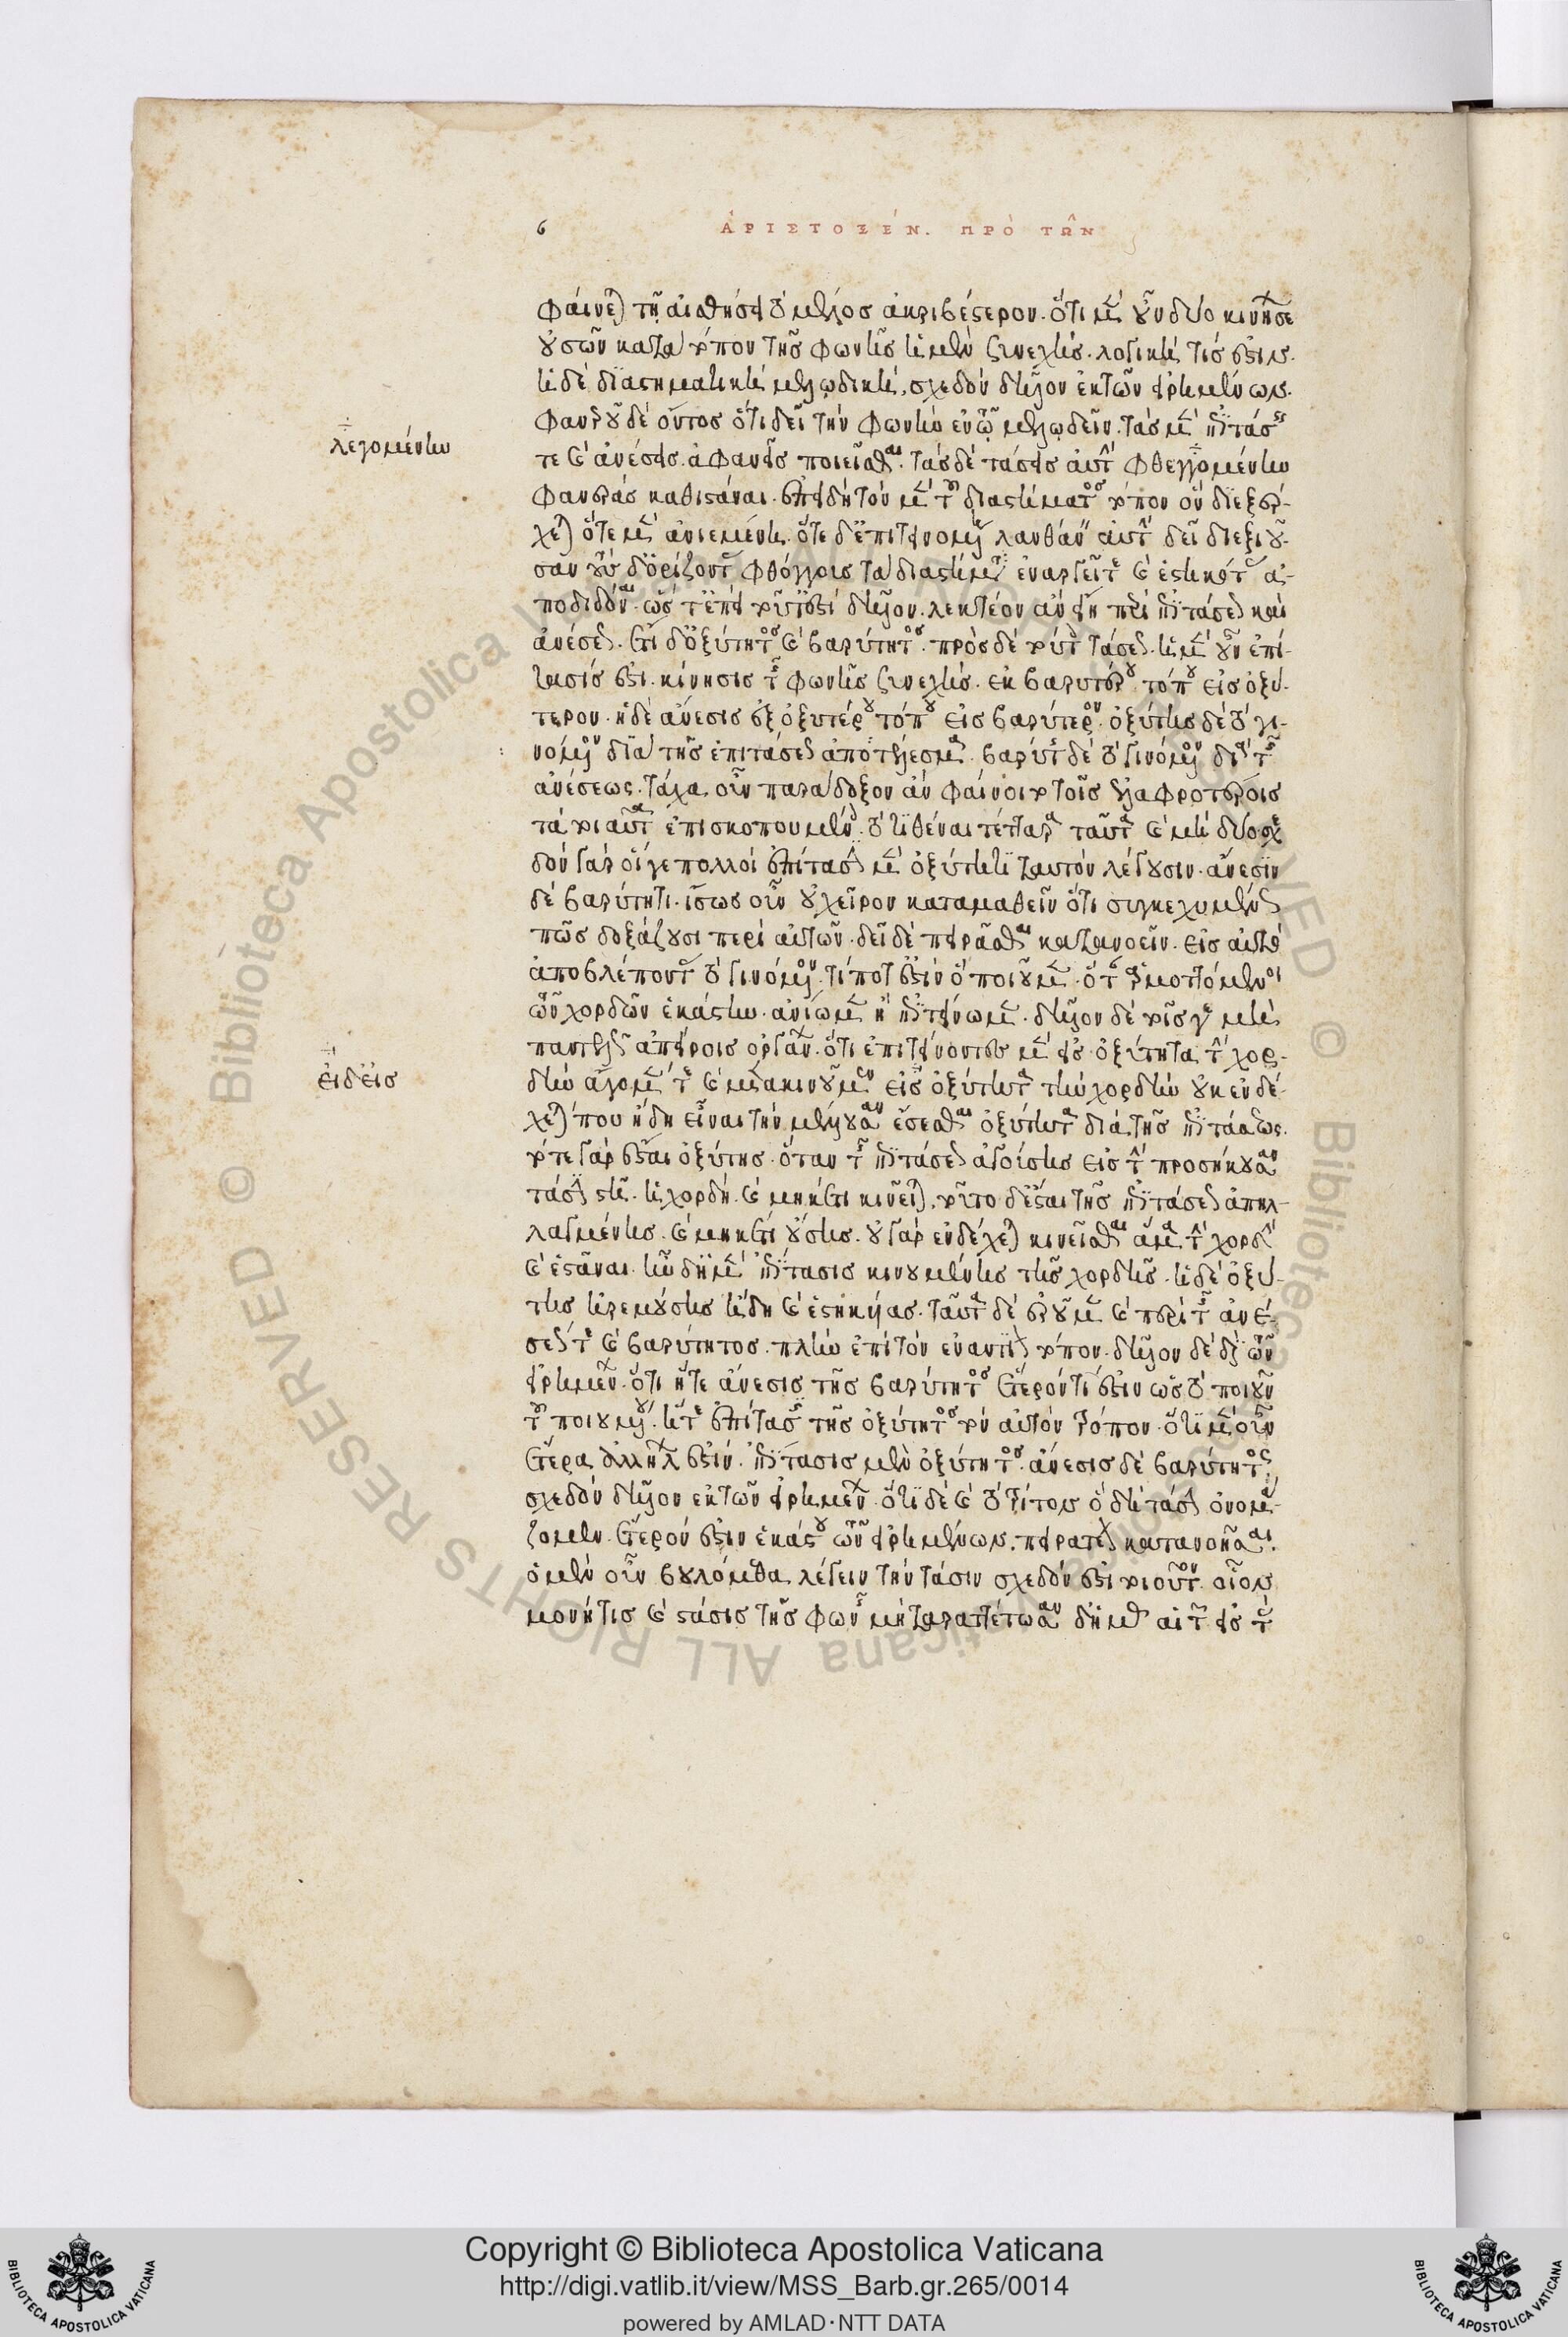 6 ἈΡΙΣΤΟΞΈΝ. ΠΡῸ ΤΩ͂Ν
φαίνεται τῇ αἰσθήσει τὸ μέλος ἀκριβέστερον. ὅτι μὲν οὖν δύο κινήσεις
οὐσῶν κατὰ τόπον τῆς φωνῆς ἡ μὲν συνεχὴς. λογική τίς ἐστιν.
ἡ δὲ διαστηματικὴ μελῳδικὴ, σχεδὸν δῆλον ἐκ τῶν εἰρημένων.
φανεροῦ δὲ ὄντος ὅτι δεῖ τὴν φωνὴν ἐν τῷ μελῳδεῖν. τὰς μὲν ἐπιτάσεις
λεγομένην
τε καὶ ἀνέσεις. ἀφανεῖς ποιεῖσθαι. τὰς δὲ τάσεις αὐτὴν φθεγγομένην
φανερὰς καθιστάναι. ἐπειδὴ τὸν μὲν τοῦ διαστήματος τόπον ὃν διεξέρ-
χεται ὁτὲ μὲν ἀνιεμένη. ὁτὲ δ' ἐπιτεινομένη λανθάνειν αὐτὴν δεῖ διεξιοῦ-
σαν τοὺς δ' ὁρίζοντας φθόγγους τὰ διαστήματα ἐναργεῖς τε καὶ ἑστηκότας ἀ-
ποδιδόναι. ὥστ' ἐπεὶ τοῦτ' ἐστὶ δῆλον. λεκτέον ἂν εἴη περὶ ἐπιτάσεως καὶ
ἀνέσεως. ἔτι δ' ὀξύτητος καὶ βαρύτητος. πρὸς δὲ τούτοις τάσεως. ἡ μὲν οὖν ἐπί-
τασίς ἐστι. κίνησις τῆς φωνῆς συνεχὴς. ἐκ βαρυτέρου τόπου εἰς ὀξύ-
τερον. ἡ δὲ ἄνεσις ἐξ ὀξυτέρου τόπου εἰς βαρύτερον. ὀξύτης δὲ τὸ γι-
νόμενον διὰ τῆς ἐπιτάσεως ἀποτέλεσμα. βαρύτης δὲ τὸ γινόμενον διὰ τῆς
ἀνέσεως. τάχα οὖν παράδοξον ἂν φαίνοιτο τοῖς ἐλαφροτέροις
τὰ τοιαῦτα ἐπισκοπουμένοις. τὸ τιθέναι τέτταρα ταῦτα καὶ μὴ δύο σχε
δὸν γὰρ οἵ γε πολλοὶ ἐπίτασιν μὲν ὀξύτητι ταυτὸν λέγουσιν. ἄνεσιν
δὲ βαρύτητι. ἴσως οὖν οὐ χεῖρον καταμαθεῖν ὅτι συγκεχυμένως
πως δοξάζουσι περὶ αὐτῶν. δεῖ δὲ πειρᾶσθαι κατανοεῖν. εἰς αὐτὸ
ἀποβλέποντας τὸ γινόμενον. τί ποτ' ἐστὶν ὃ ποιοῦμεν. ὅταν ἁρμοττόμενοι
τῶν χορδῶν ἑκάστην. ἀνιῶμεν ἢ ἐπιτείνωμεν. δῆλον δὲ τοῖς γε μὴ
παντελῶς ἀπείροις ὀργάνων. ὅτι ἐπιτείνοντες μὲν εἰς ὀξύτητα τὴν χορ-
εἰδεῖς
δὴν ἄγομεν
χεται που ἤδη εἶναι τὴν μέλλουσαν ἔσεσθαι ὀξύτητα διὰ τῆς ἐπιτάσεως.
τότε γὰρ ἔσται ὀξύτης. ὅταν τῆς ἐπιτάσεως ἀγούσης εἰς τὴν προσήκουσαν
τάσιν στῇ. ἡ χορδὴ. καὶ μηκέτι κινεῖται. τοῦτο δ' ἔσται τῆς ἐπιτάσεως ἀπηλ-
λαγμένης. καὶ μηκέτι οὔσης. οὐ γὰρ ἐνδέχεται κινεῖσθαι ἅμα τὴν χορδὴν
καὶ ἑστάναι. ἦν δὴ μὲν ἐπίτασις κινουμένης τῆς χορδῆς. ἡ δὲ ὀξύ-
της ἠρεμούσης ἤδη καὶ ἑστηκυίας. ταῦτα δὲ ἐροῦμεν καὶ περὶ τῆς ἀνέ-
σεώς τε καὶ βαρύτητος. πλὴν ἐπὶ τὸν ἐναντίον τόπον. δῆλον δὲ διὰ τῶν
εἰρημένων. ὅτι ἥ τε ἄνεσις τῆς βαρύτητος ἕτερόν τί ἐστιν ὡς τὸ ποιοῦν
τοῦ ποιουμένου. ἥ τε ἐπίτασις τῆς ὀξύτητος τὸν αὐτὸν τρόπον. ὅτι μὲν οὖν
ἕτερα ἀλλήλων ἐστὶν. ἐπίτασις μὲν ὀξύτητος. ἄνεσις δὲ βαρύτητος.
σχεδὸν δῆλον ἐκ τῶν εἰρημένων. ὅτι δὲ καὶ τὸ τρίτον ὃ δὴ τάσιν ὀνομά-
ζομεν. ἕτερόν ἐστιν ἑκάστου τῶν εἰρημένων. πειρατέον κατανοῆσαι.
ὃ μὲν οὖν βουλόμεθα λέγειν τὴν τάσιν σχεδόν ἐστι τοιοῦτον. οἷον
μονή τις καὶ στάσις τῆς φωνῆς μὴ ταραττέτωσαν δ' ἡμᾶς αἱ τῶν εἰς
Copyright © Biblioteca Apostolica Vaticana
http://digi.vatlib.it/view/MSS_Barb.gr.265/0014
powered by AMLAD·NTT DATA